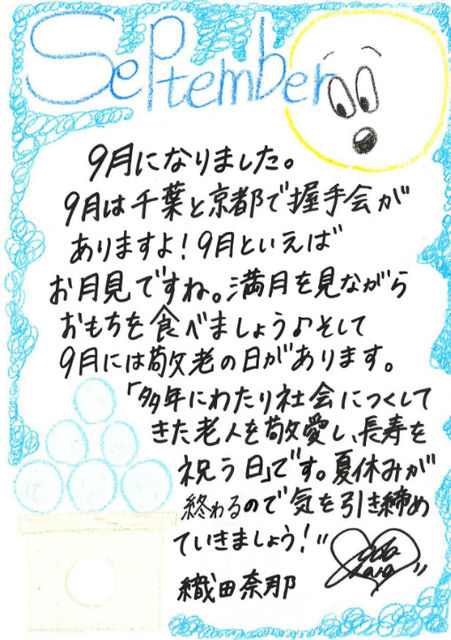 September
9月になりました。
9月は千葉と京都で握手会が
ありますよ！9月といえば
お月見ですね。満月を見ながら
おもちを食べましょう♪そして
9月には敬老の日があります。
「多年にわたり社会につくして
きた老人を敬愛し、長寿を
祝う日」です。夏休みが
終わるので気を引き締め
ていきましょう！"
織田奈那